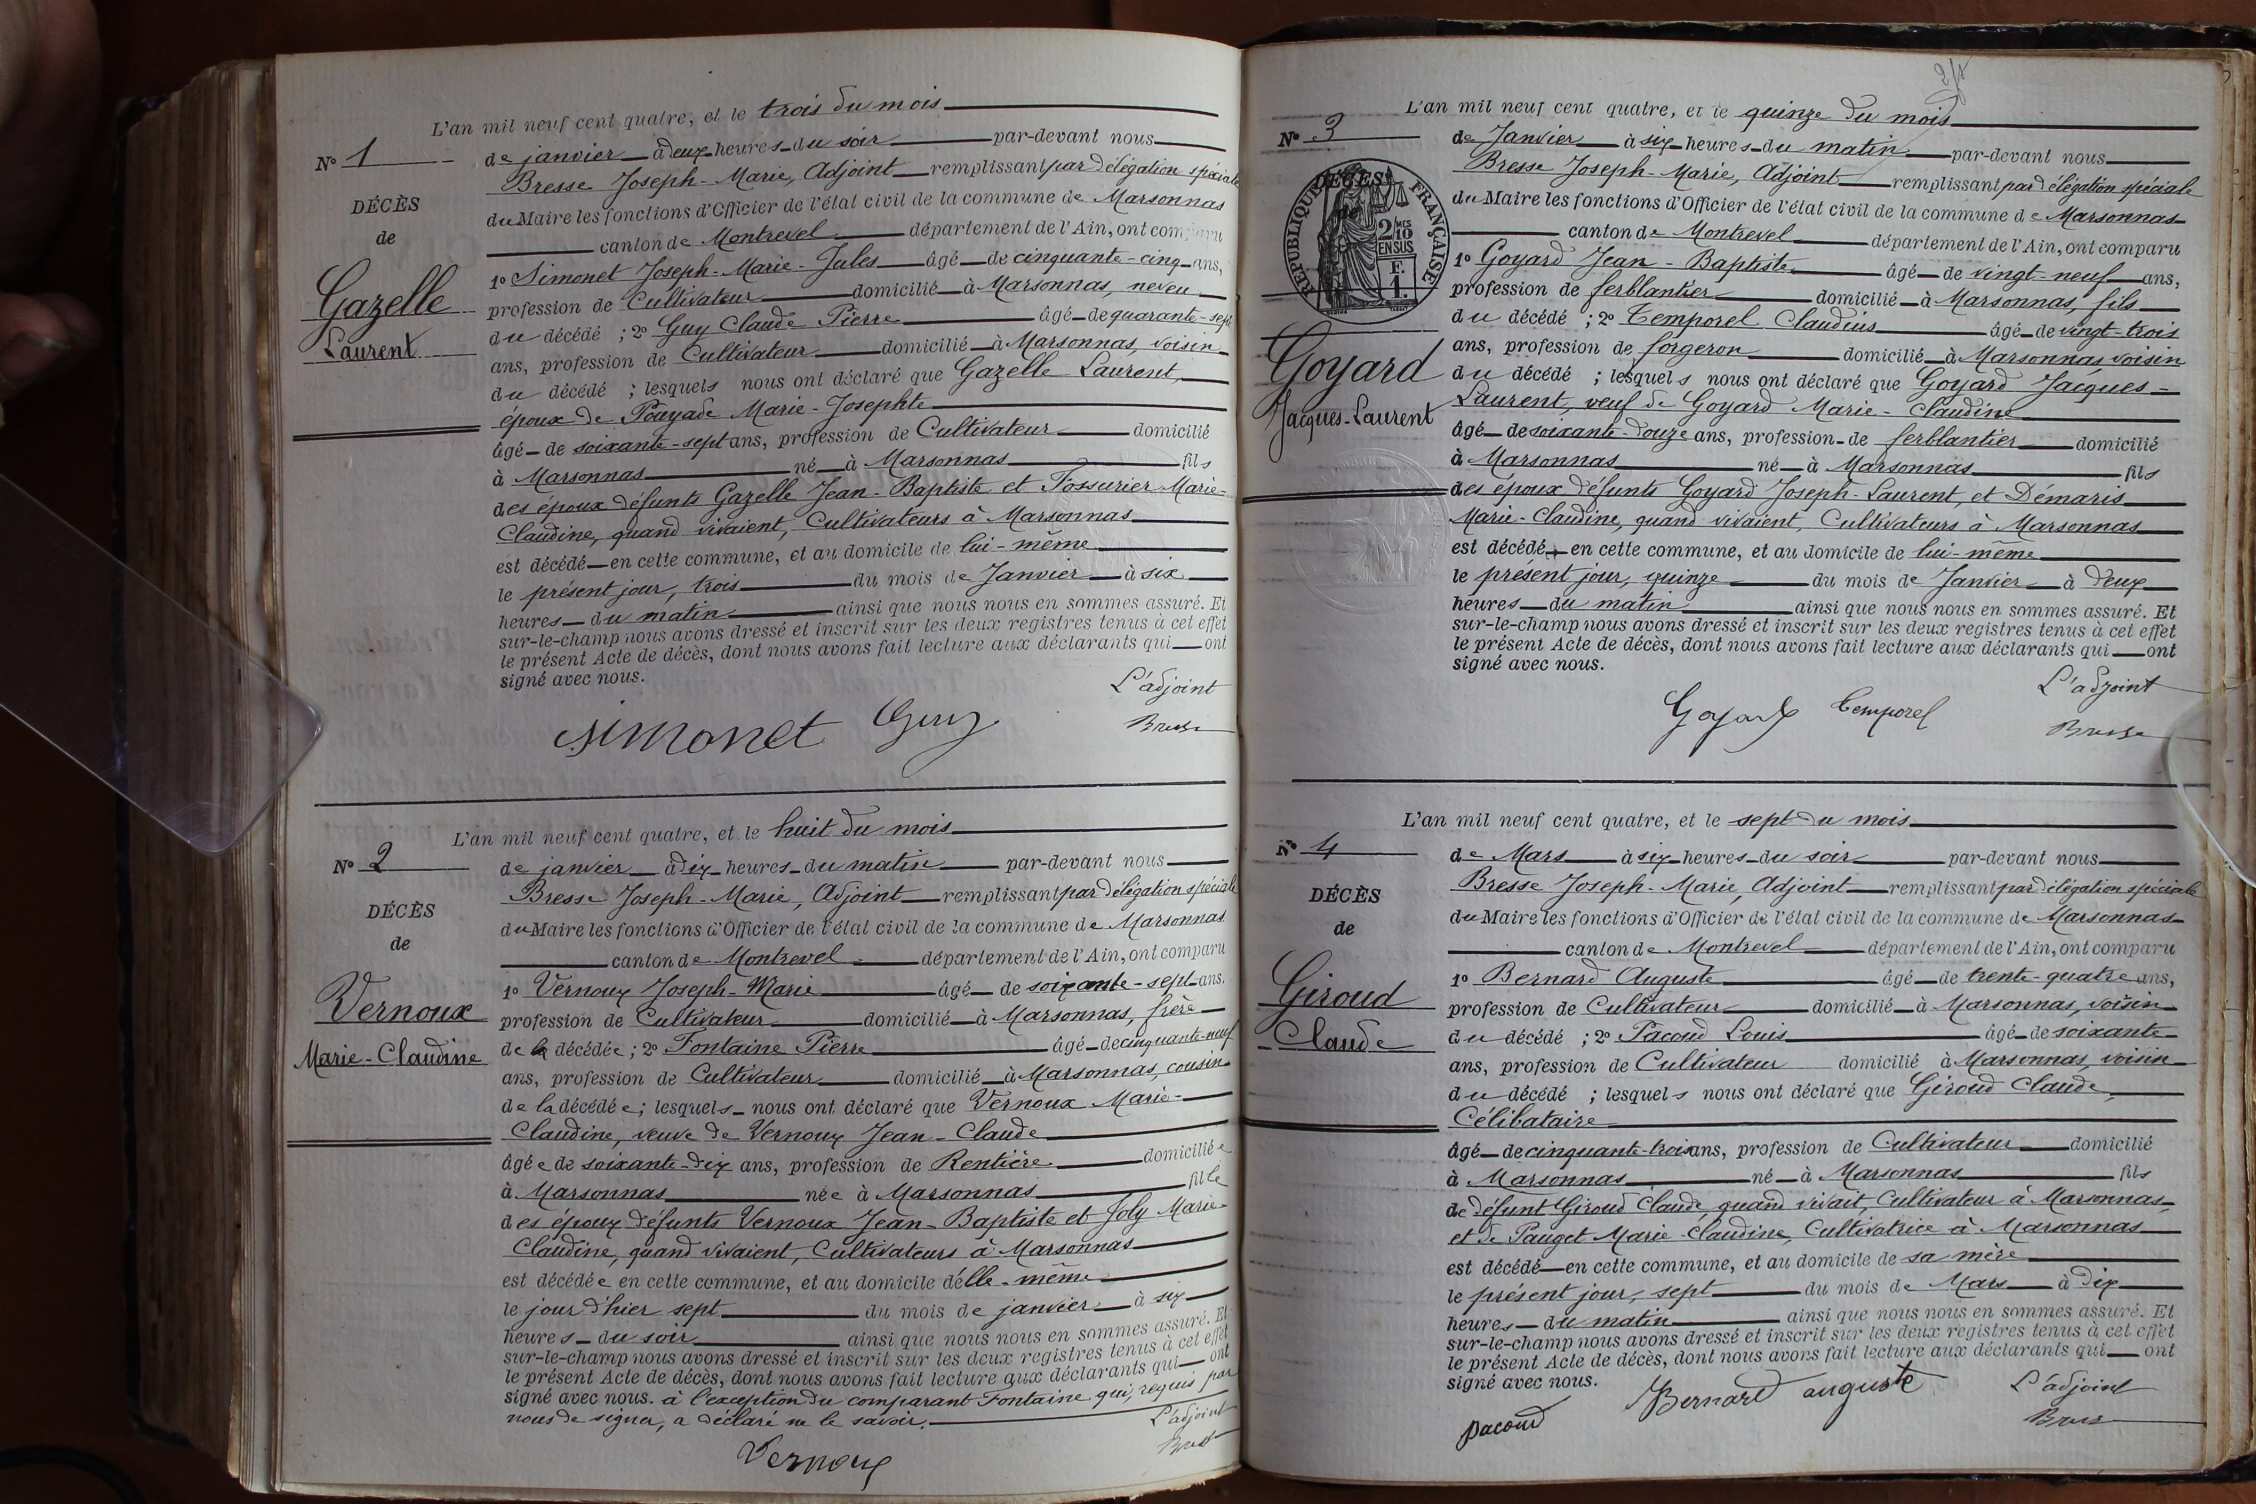 L'an mil neuf cent quatre, et le trois du mois
N° 1
de janvier à deux heures du soir par-devant nous
Bresse Joseph-Marie, Adjoint remplissant par délégation spéciale
DÉCÈS
du Maire les fonctions d'Officier de l'état civil de la commune de Marsonnas
de
canton de Montrevel département de l'Ain, ont comparu
1° Simonet Joseph-Marie-Jules âgé de cinquante-cinq ans,
Gazelle
profession de Cultivateur domicilié à Marsonnas, neveu
Laurent
du décédé ; 2° Guy Claude Pierre âgé de quarante-sept
ans, profession de Cultivateur domicilié à Marsonnas, voisin
du décédé ; lesquels nous ont déclaré que Gazelle Laurent,
époux de Pouyade Marie-Josephte
âgé de soixante-sept ans, profession de Cultivateur domicilié
à Marsonnas né à Marsonnas fils
des époux défunts Gazelle Jean-Baptiste et Fossurier Marie-
Claudine, quand vivaient, Cultivateurs à Marsonnas
est décédé en cette commune, et au domicile de lui-même
le présent jour, trois du mois de Janvier à six
heures du matin ainsi que nous nous en sommes assuré. Et
sur-le-champ nous avons dressé et inscrit sur les deux registres tenus à cet effet
le présent Acte de décès, dont nous avons fait lecture aux déclarants qui ont
signé avec nous.
L'adjoint
Simonet Guy Bresse
L'an mil neuf cent quatre, et le huit du mois
N° 2
de janvier à dix heures du matin par-devant nous
Bresse Joseph-Marie, Adjoint remplissant par délégation spéciale
DÉCÈS
du Maire les fonctions d'Officier de l'état civil de la commune de Marsonnas
de
canton de Montrevel département de l'Ain, ont comparu
1° Vernoux Joseph-Marie âgé de soixante-sept ans.
Vernoux
profession de Cultivateur domicilié à Marsonnas, frère
Marie-Claudine
de la décédée ; 2° Fontaine Pierre âgé de cinquante-neuf
ans, profession de Cultivateur domicilié à Marsonnas, cousin
de la décédée ; lesquels nous ont déclaré que Vernoux Marie-
Claudine, veuve de Vernoux Jean-Claude
âgée de soixante-dix ans, profession de Rentière domiciliée
à Marsonnas née à Marsonnas fille
des époux défunts Vernoux Jean-Baptiste et Joly Marie-
Claudine, quand vivaient, Cultivateurs à Marsonnas
est décédée en cette commune, et au domicile d'elle-même
le jour d'hier sept du mois de janvier à six
heures du soir ainsi que nous nous en sommes assuré. Et
sur-le-champ nous avons dressé et inscrit sur les deux registres tenus à cet effet
le présent Acte de décès, dont nous avons fait lecture aux déclarants qui ont
signé avec nous. à l'exception du comparant Fontaine qui, requis par
nous de signer, a déclaré ne le savoir.
L'adjoint
Vernoux Bresse
L'an mil neuf cent quatre, et le quinze du mois
N° 3
de Janvier à six heures du matin par-devant nous
Bresse Joseph-Marie, Adjoint remplissant par délégation spéciale
DÉCÈS
de
RÉPUBLIQUE FRANÇAISE
2/10 MES
EN SUS
F.
1.
du Maire les fonctions d'Officier de l'état civil de la commune de Marsonnas
canton de Montrevel département de l'Ain, ont comparu
1° Goyard Jean-Baptiste âgé de vingt-neuf ans,
profession de ferblantier domicilié à Marsonnas, fils
du décédé ; 2° Temporel Claudius âgé de vingt-trois
Goyard
ans, profession de forgeron domicilié à Marsonnas, voisin
Jacques-Laurent
du décédé ; lesquels nous ont déclaré que Goyard Jacques-
Laurent, veuf de Goyard Marie-Claudine
âgé de soixante-douze ans, profession de ferblantier domicilié
à Marsonnas né à Marsonnas fils
des époux défunts Goyard Joseph-Laurent, et Démaris
Marie-Claudine, quand vivaient, Cultivateurs à Marsonnas
est décédé en cette commune, et au domicile de lui-même
le présent jour, quinze du mois de Janvier à deux
heures du matin ainsi que nous nous en sommes assuré. Et
sur-le-champ nous avons dressé et inscrit sur les deux registres tenus à cet effet
le présent Acte de décès, dont nous avons fait lecture aux déclarants qui ont
signé avec nous.
L'adjoint
Goyard Temporel Bresse
L'an mil neuf cent quatre, et le sept du mois
N° 4
de Mars à six heures du soir par-devant nous
Bresse Joseph-Marie, Adjoint remplissant par délégation spéciale
DÉCÈS
du Maire les fonctions d'Officier de l'état civil de la commune de Marsonnas
de
canton de Montrevel département de l'Ain, ont comparu
1° Bernard Auguste âgé de trente-quatre ans,
Giroud
profession de Cultivateur domicilié à Marsonnas, voisin
Claude
du décédé ; 2° Pacoud Louis âgé de soixante
ans, profession de Cultivateur domicilié à Marsonnas, voisin
du décédé ; lesquels nous ont déclaré que Giroud Claude,
Célibataire
âgé de cinquante-trois ans, profession de Cultivateur domicilié
à Marsonnas né à Marsonnas fils
de défunt Giroud Claude, quand vivait, Cultivateur à Marsonnas,
et de Pauget Marie-Claudine, Cultivatrice à Marsonnas
est décédé en cette commune, et au domicile de sa mère
le présent jour, sept du mois de Mars à dix
heures du matin ainsi que nous nous en sommes assuré. Et
sur-le-champ nous avons dressé et inscrit sur les deux registres tenus à cet effet
le présent Acte de décès, dont nous avons fait lecture aux déclarants qui ont
signé avec nous.
L'adjoint
Pacoud Bernard auguste Bresse